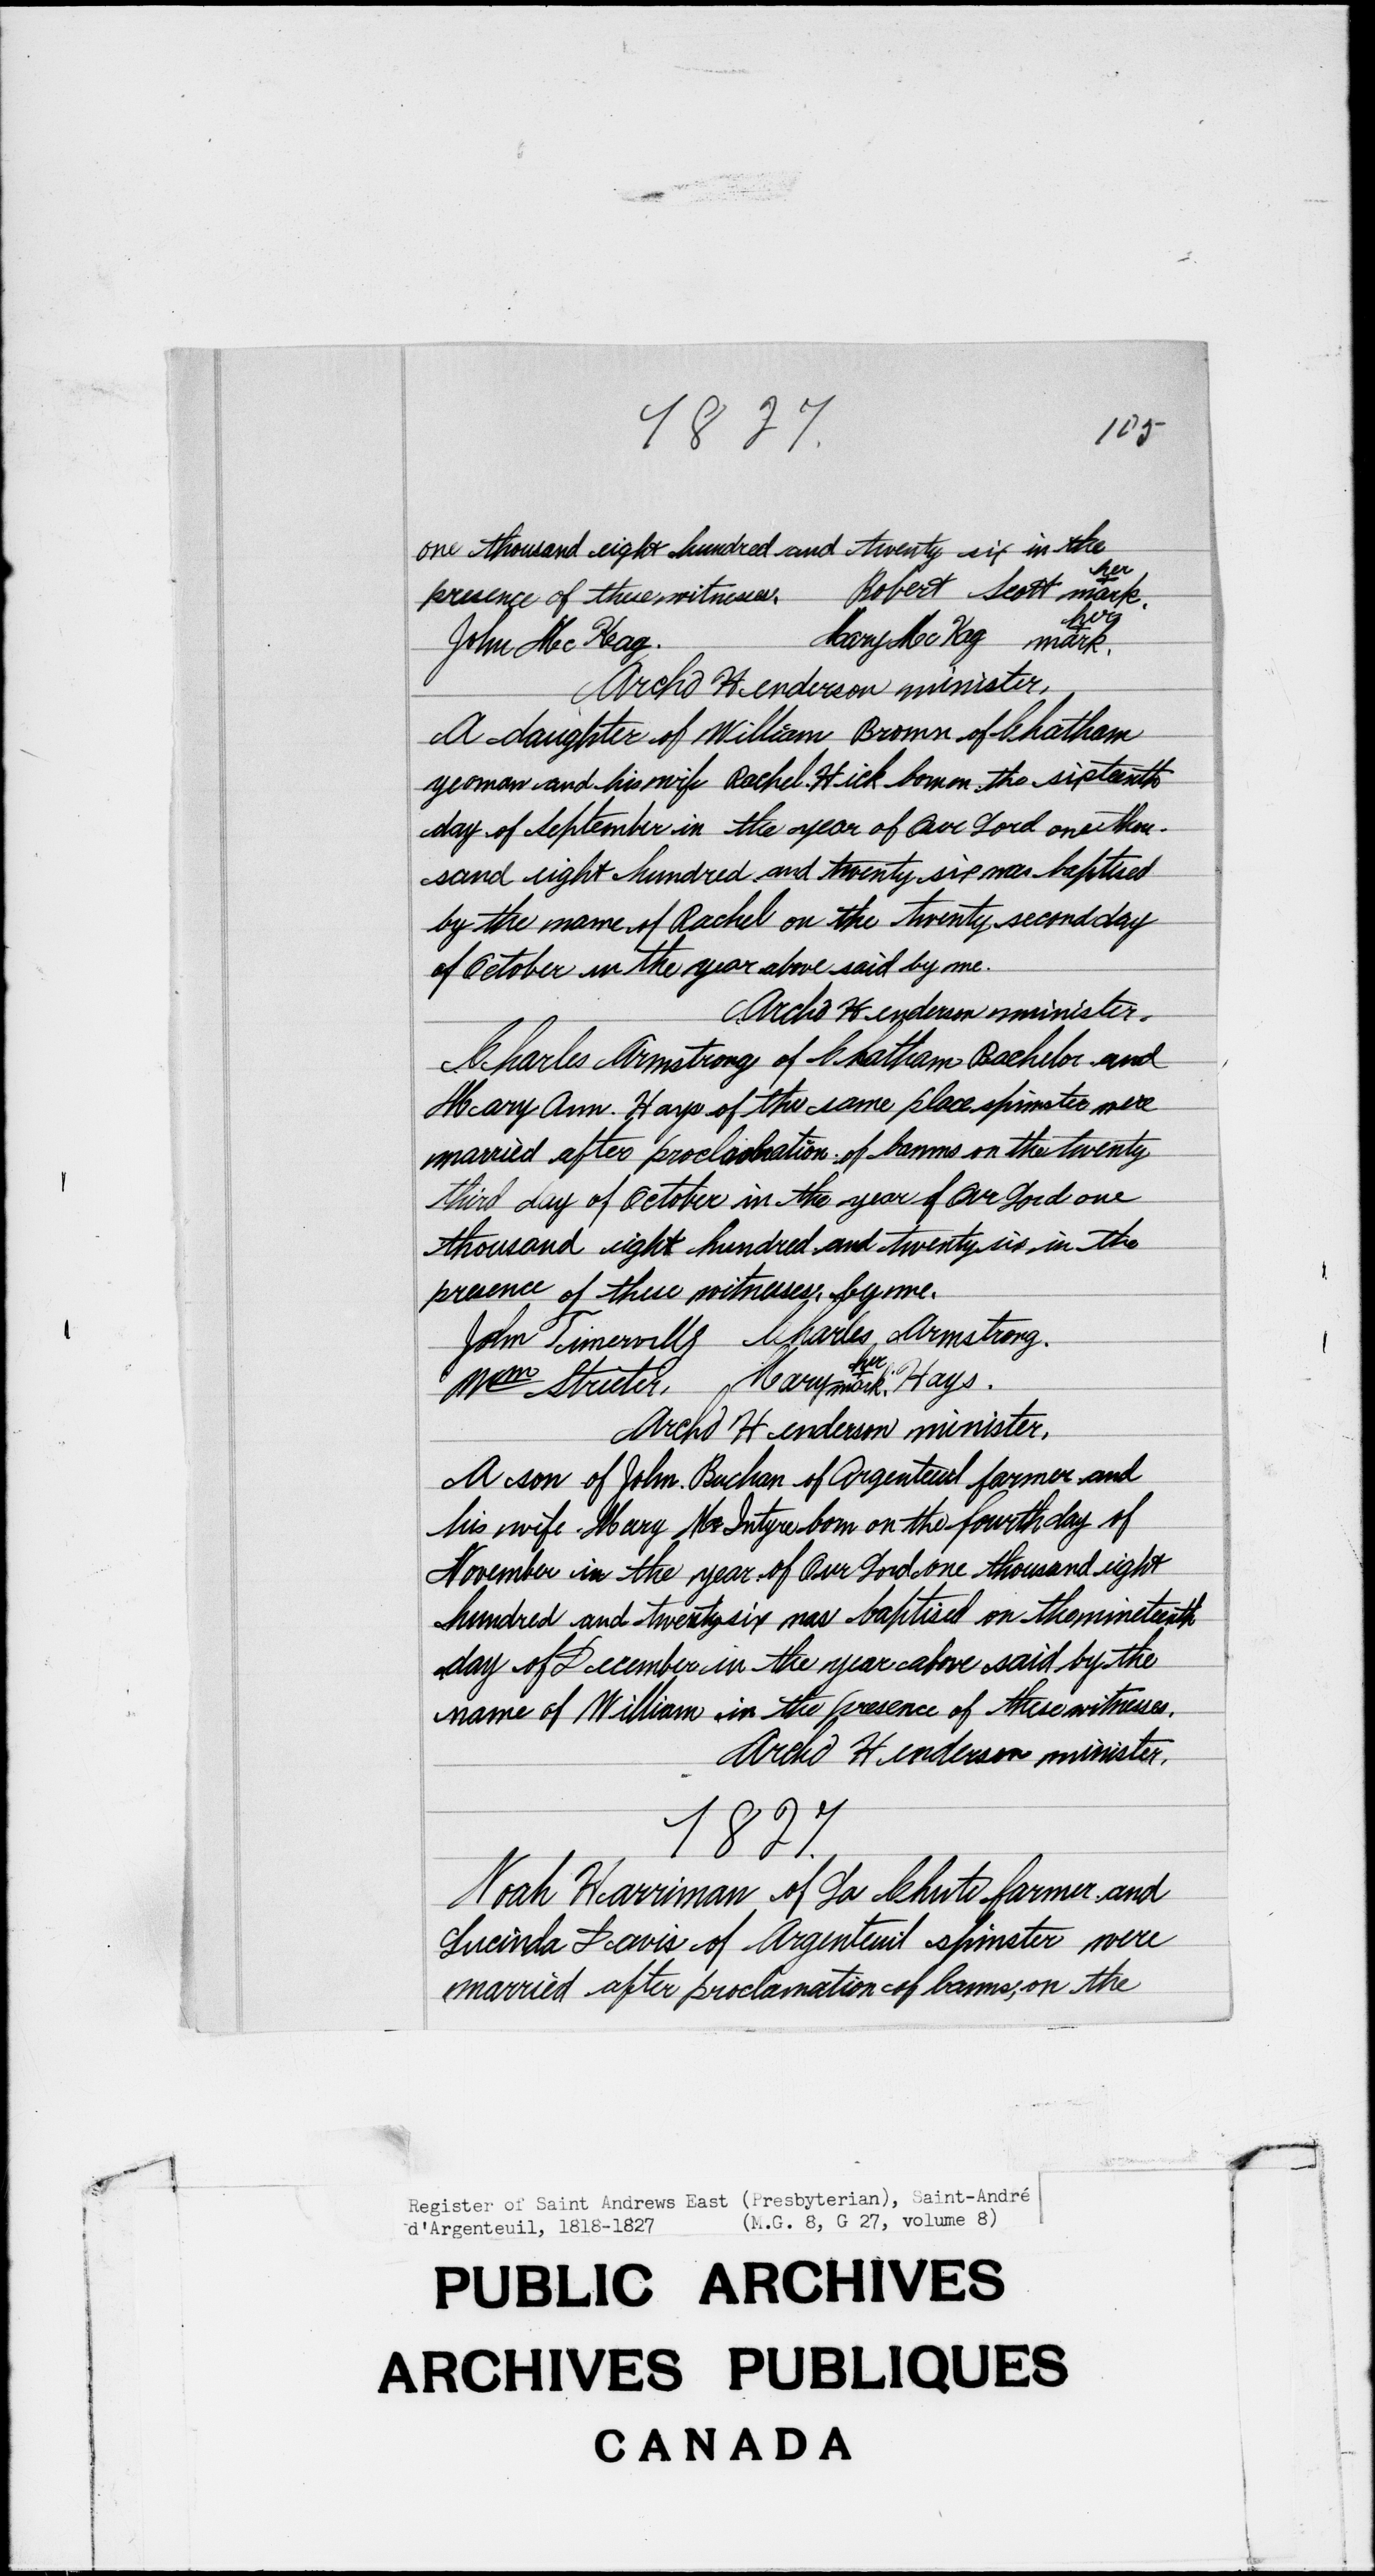 1827.
105
one thousand eight hundred and twenty six in the
presence of these witnesses. Robert Scott her mark.
John Mc Keag. Mary Mc Kag her mark.
Archd Henderson minister.
A daughter of William Brown of Chatham
yeoman and his wife Rachel Hick born on the sixteenth
day of September in the year of Our Lord one thou-
sand eight hundred and twenty six was baptised
by the name of Rachel on the twenty second day
of October in the year above said by me.
Archd Henderson minister.
Charles Armstrong of Chatham Bachelor and
Mary Ann Hays of the same place spinster were
married after of banns on the twenty
third day of October in the year of Our Lord one
thousand eight hundred and twenty six in the
presence of these witnesses, by me.
John Charles Armstrong.
Wm Streeter, Mary her mark. Hays.
Archd Henderson minister.
A son of John Buchan of Argenteuil farmer and
his wife Mary Mc Intyre born on the fourth day of
November in the year of Our Lord one thousand eight
hundred and twenty six was baptised on the nineteenth
day of December in the year above said by the
name of William in the presence of these witnesses.
Archd Henderson minister.
1827.
Noah Harriman of La Chute farmer and
Lucinda Davis of Argenteuil spinster were
married after proclamation of banns, on the
Register of Saint Andrews East (Presbyterian), Saint-André
d'Argenteuil, 1818-1827 (M.G. 8, G 27, volume 8)
PUBLIC ARCHIVES
ARCHIVES PUBLIQUES
CANADA